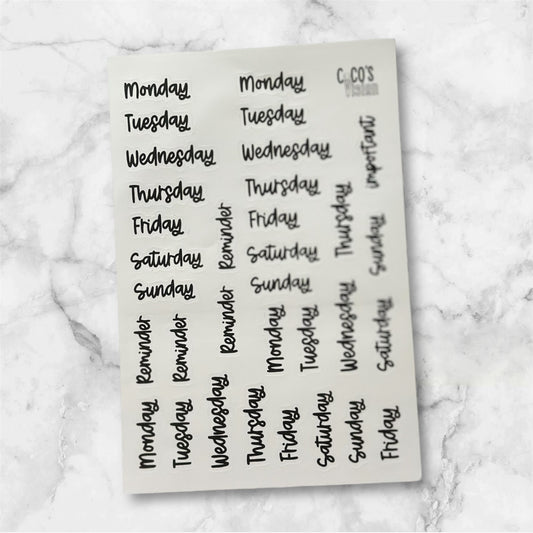 Monday
Tuesday
Wednesday
Thursday
Friday
Saturday
Sunday
Monday
Tuesday
Wednesday
Thursday
Friday
Saturday
Sunday
CoCO'S
Vision
important
Reminder
Thursday
Sunday
Reminder
Reminder
Reminder
Monday
Tuesday
Wednesday
Saturday
Monday
Tuesday
Wednesday
Thursday
Friday
Saturday
Sunday
Friday